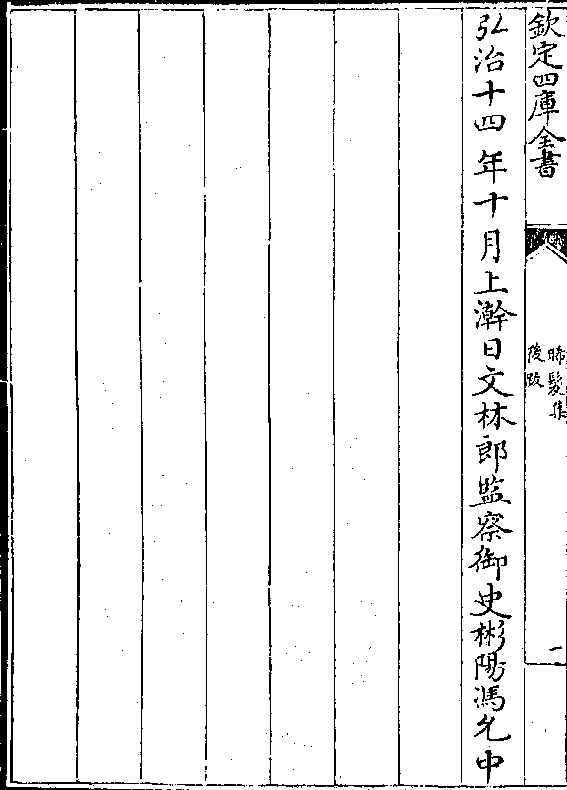 欽定四庫全書
晞髮集
後跋
一
弘治十四年十月上澣日文林郎監察御史彬陽馮允中